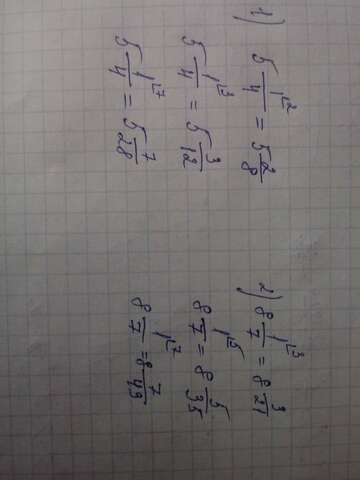 1)
5 1/4 ⌞2 = 5 2/8
5 1/4 ⌞3 = 5 3/12
5 1/4 ⌞7 = 5 7/28
2) 8 1/7 ⌞3 = 8 3/21
8 1/7 ⌞5 = 8 5/35
8 1/7 ⌞7 = 8 7/49